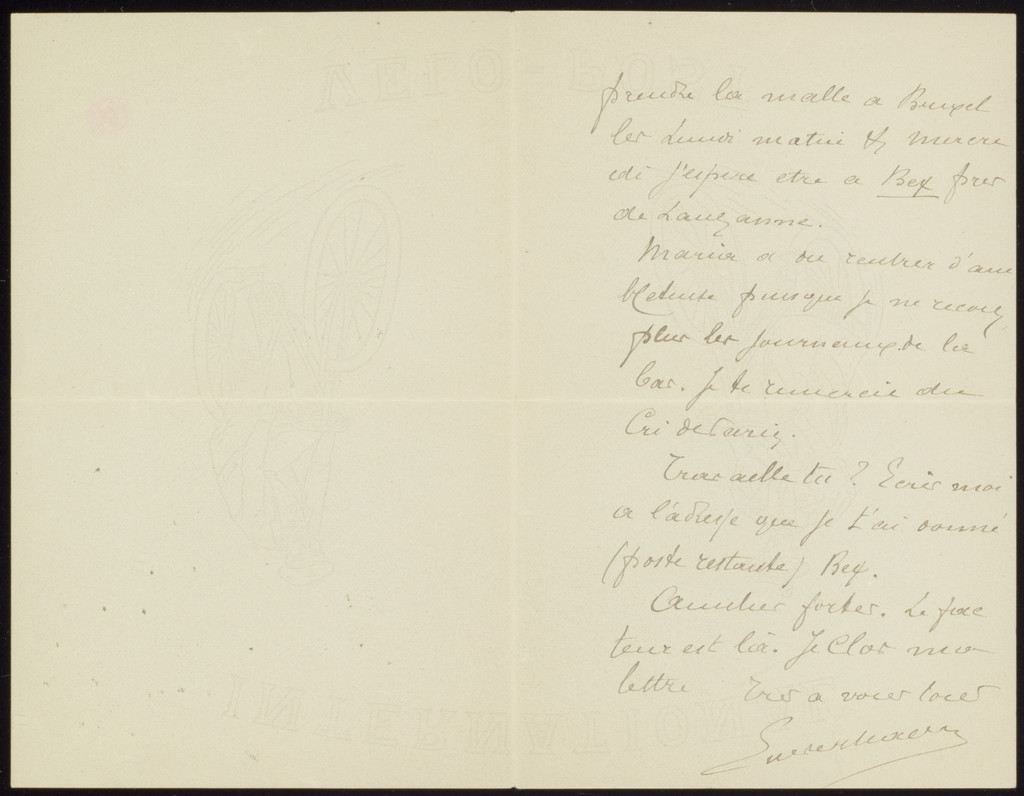 prendre la malle a Bruxel
les Lundi matin & mercre
di j'espere etre a Bex pres
de Lauzanne.
Maria a du rentrer d'am
puisque je ne recois
plus les journaux de la
bas. Je te remercie du
Cri de Paris.
Travaelle tu ? Ecris moi
a l'adresse que je t'ai donné
(poste restante) Bex.
Amities fortes. Le fac
teur est là. Je clos ma
lettre Tres a vous tous
Em Verhaeren
VELO - POST
INTERNATION